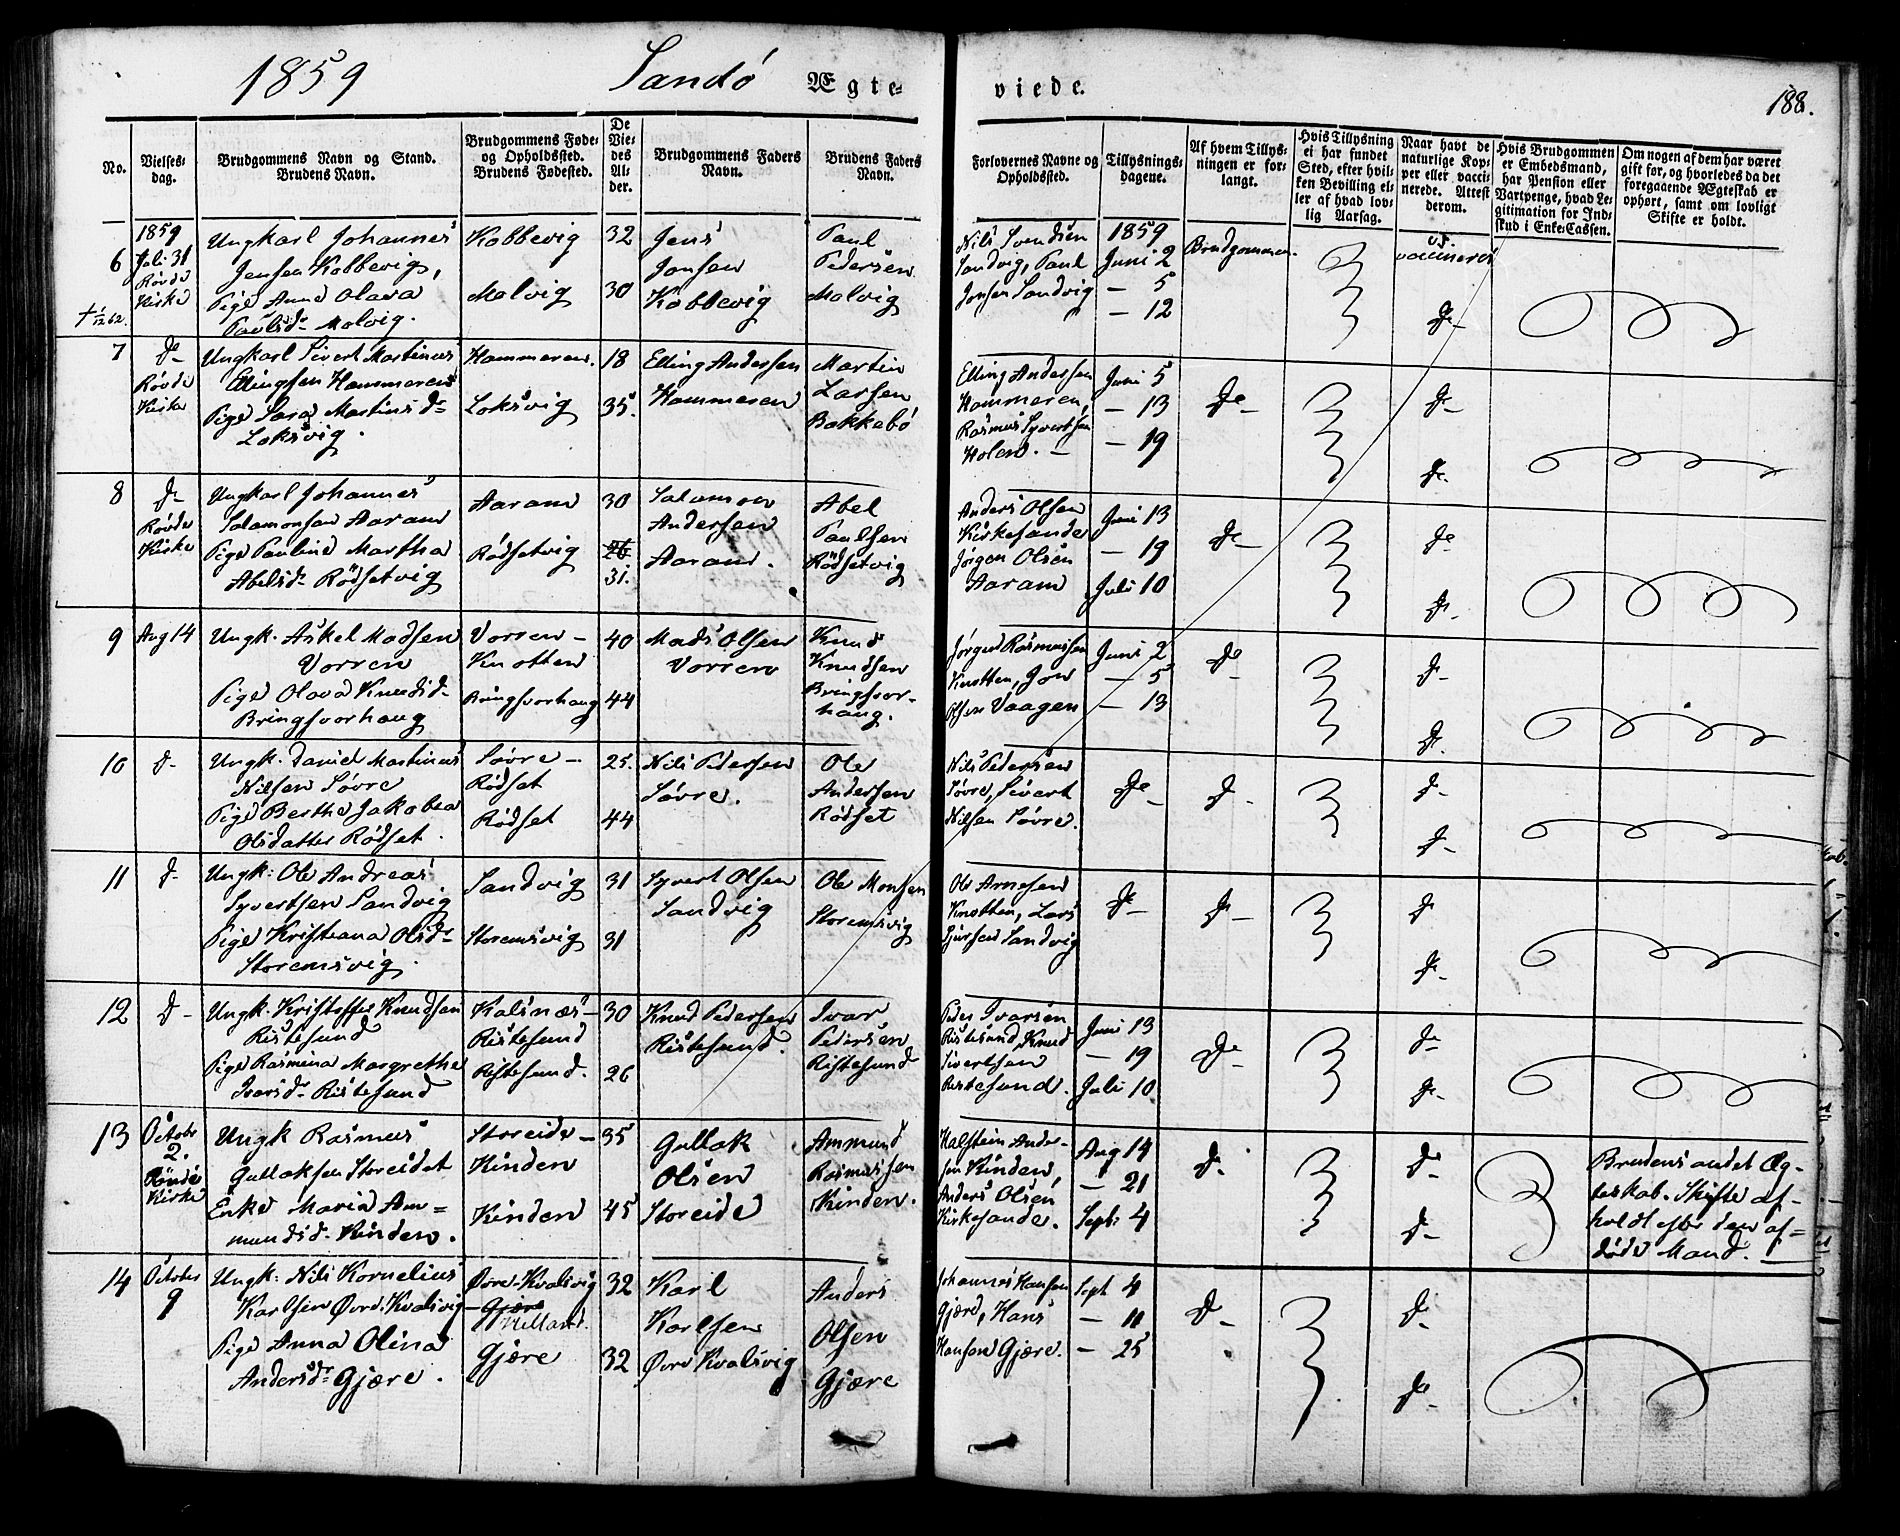 1859 Sandö Ægte-
viede.
188.
No.
Vielses-
dag.
Brudgommens Navn og Stand.
Brudens Navn.
Brudgommens Føde-
og Opholdssted.
Brudens Fødested.
De
Vie-
des
Al-
der.
Brudgommens Faders
Navn.
Brudens Faders
Navn.
Forlovernes Navne og
Opholdssted.
Tillysnings-
dagene.
Af hvem Tillys-
ningen er for-
langt.
Hvis Tillysning
ei har fundet
Sted, efter hvil-
ken Bevilling el-
ler af hvad lov-
lig Aarsag.
Naar havt de
naturlige Kop-
per eller vacci-
nerede. Attest
derom.
Hvis Brudgommen
er Embedsmand,
har Pension eller
Vartpenge, hvad Le-
gitimation for Ind-
skud i Enke-Cassen.
Om nogen af dem har været
gift før, og hvorledes da det
foregaaende Ægteskab er
ophørt, samt om lovligt
Skifte er holdt.
6
1859
Juli 31
Rövde
Kirke
Ungkarl Johannes
Jensen Kobbevig,
Pige Anne Olava
Paulsdr Molvig.
Kobbevig
Molvig
32
30
Jens
Jonsen
Kobbevig
Paul
Pedersen
Molvig
Nils Svendsen
Sandvig, Paul
Jonsen Sandvig
1859
Juni 2
— 5
— 12
Brudgommen.
vaccineret
do
7
do
Rövde
Kirke
Ungkarl Sivert Martinus
Ellingsen Hammeren
Pige Sara Martinsdr
Loksvig.
Hammeren.
Loksvig
18
35.
Elling Andersen
Hammeren
Martin
Larsen
Bakkebö
Elling Andersen
Hammeren,
Rasmus Syvertsen
Holen. —
Juni 5
— 13
— 19
do
do
do
8
do
Rövde
Kirke
Ungkarl Johannes
Salamonsen Aaram
Pige Pauline Martha
Abelsdr Rödsetvig
Aaram
Rödsetvig
30
26
31.
Salamon
Andersen
Aaram.
Abel
Paulsen
Rödsetvig
Anders Olsen
Kirkesande
Jörgen Olsen
Aaram
Juni 13
— 19
Juli 10
do
do
do
9
Aug 14
Ungk. Askel Madsen
Vorren
Pige Olava Knudsdr
Bringsvorhaug
Vorren –
Knotten
Bringsvorhaug
40
44
Mads Olsen
Vorren
Knud
Knudsen
Bringsvor-
haug.
Jörgen Rasmussen
Knotten, Jon
Olsen Vaagen
Juni 2
— 5
— 13
do
do
do
10
do
Ungk. Daniel Martinus
Nilsen Sövre
Pige Berthe Jakobea
Olsdatter Rödset.
Sövre –
Rödset
Rödset
25.
44
Nils Pedersen
Sövre.
Ole
Andersen
Rödset
Nils Pedersen
Sövre, Sivert
Nilsen Sövre.
do
do
do
do
11
do
Ungk: Ole Andreas
Syvertsen Sandvig
Pige Kristiana Olsdr
Storemsvig.
Sandvig
Storemsvig
31
31
Syvert Olsen
Sandvig
Ole Monsen
Storemsvig
Ole Arnesen
Knotten, Lars
Sjursen Sandvig
do
do
do
do
12
do
Ungk. Kristoffer Knudsen
Ristesund
Pige Rasmina Margrethe
Ivarsdr Ristesund
Kalsnæs –
Ristesund
Ristesund.
30
26
Knud Pedersen
Ristesund.
Ivar
Pedersen
Ristesund
Peder Ivarsen
Ristesund, Knud
Sivertsen
Ristesund.
Juni 13
— 19
Juli 10
do
do
do
13
Octobr
2.
Rövde
Kirke
Ungk Rasmus
Gullaksen Storeidet
Enke Maria Am=
mundsd. Kinden.
Storeide –
Kinden
Kinden
35
45
Gullak
Olsen
Storeide
Ammund
Rasmussen
Kinden.
Halstein Ander-
sen Kinden,
Anders Olsen
Kirkesande.
Aug 14
— 21
Septr 4
do
do
do
Brudens andet Æg-
teskab. Skifte af-
holdt efter den af-
døde Mand.
14
October
9
Ungk: Nils Kornelius
Karlsen Övre Kvalsvig
Pige Anna Olina
Andersdr Gjære.
Övre-Kvalsvig
– Gjære
Gjære
32
32
Karl
Karlsen
Övre Kvalsvig
Anders
Olsen
Gjære
Johannes Hansen
Gjære, Hans
Hansen Gjære.
Sept 4
— 11
— 25
do
do
do